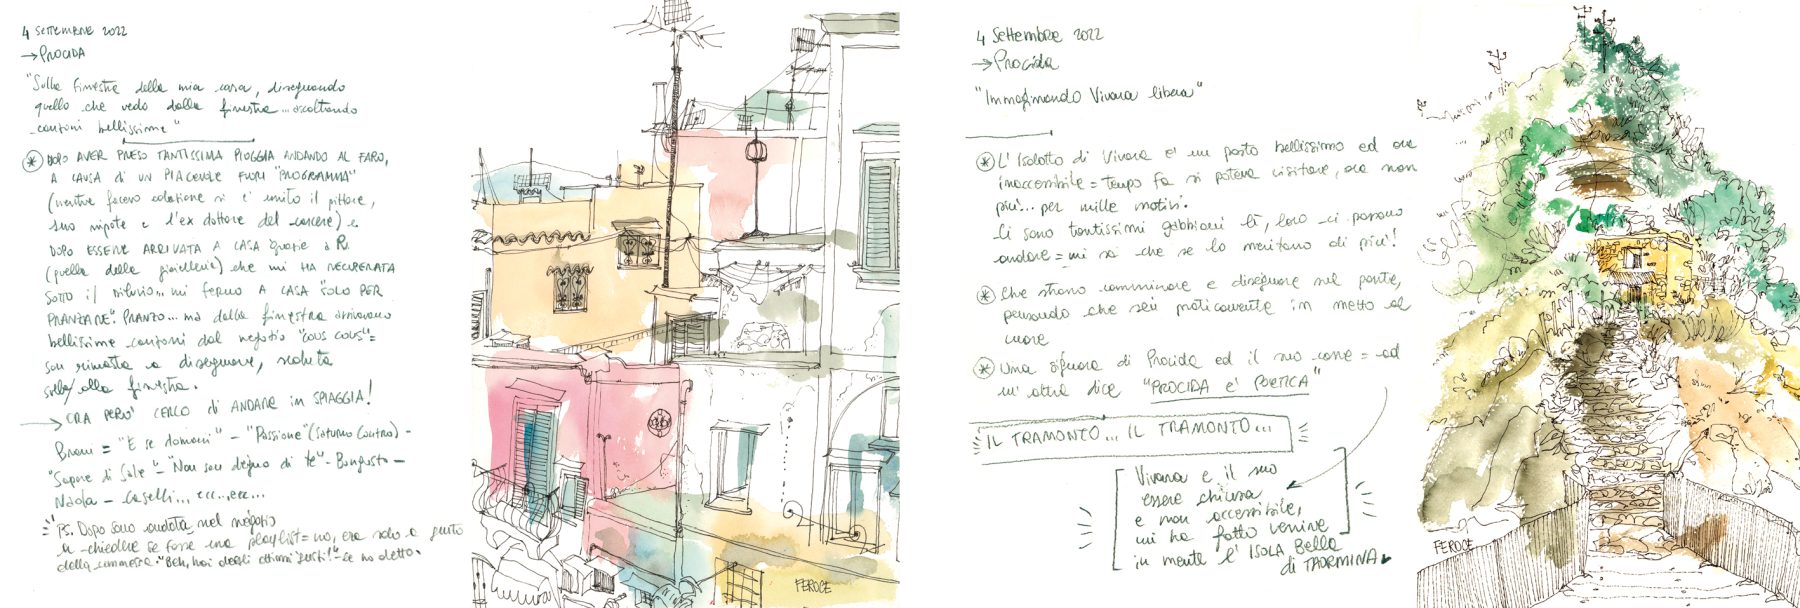 4 SETTEMBRE 2022
→ PROCIDA
"Sulla finestra della mia casa, disegnando
quello che vedo dalla finestra... ascoltando
canzoni bellissime"
* DOPO AVER PRESO TANTISSIMA PIOGGIA ANDANDO AL FARO,
A CAUSA di UN PIACEVOLE FUORI "PROGRAMMA"
(mentre facevo colazione si è unito il pittore,
suo nipote e l'ex dottore del carcere) e
DOPO ESSERE ARRIVATA A CASA grazie a
(quella della gioielleria) che mi HA RECUPERATA
SOTTO il diluvio... mi fermo A CASA "SOLO PER
PRANZARE". PRANZO... ma dalla finestra arrivavano
bellissime canzoni dal negozio "COUS COUS" =
son rimasta a disegnare, seduta
sulla/alla finestra.
→ ORA PERÒ CERCO di ANDARE in SPIAGGIA!
Brani = "E se domani" - "Passione" (Saturno Contro) -
"Sapore di Sale" - "Non son degno di te" - Bongusto -
Caselli... ecc...ecc...
PS. Dopo sono andata nel negozio
a chiedere se fosse una playlist = no, era solo a gusto
della commessa. "Beh, hai degli ottimi gusti!" le ho detto.
FEROCE
4 Settembre 2022
→ Procida
"Immaginando Vivara libera"
* L'Isolotto di Vivara è un posto bellissimo ed ora
inaccessibile = tempo fa si poteva visitare, ora non
più... per mille motivi.
Ci sono tantissimi gabbiani lì, loro ci possono
andare = mi sa che se lo meritano di più!
* Che strano camminare e disegnare sul ponte,
pensando che sei praticamente in mezzo al
mare
* Una signora di Procida ed il suo cane = ad
un'altra dice "PROCIDA E' POETICA"
IL TRAMONTO... IL TRAMONTO...
Vivara e il suo
essere chiusa
e non accessibile,
mi ha fatto venire
in mente l'ISOLA Bella
di TAORMINA
FEROCE